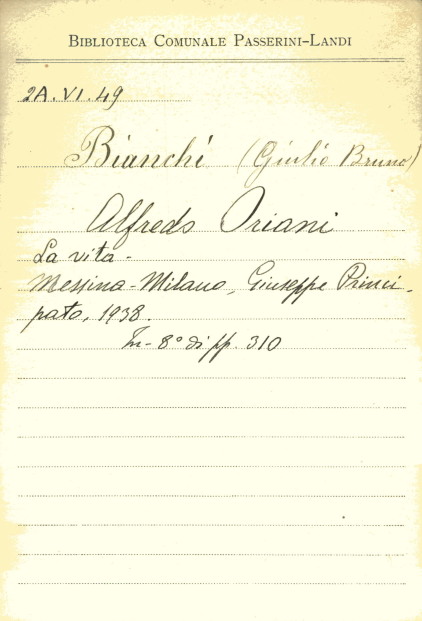 BIBLIOTECA COMUNALE PASSERINI-LANDI
2A.VI.49
Bianchi (Giulio Bruno)
Alfredo Oriani
La vita -
Messina - Milano, Giuseppe Princi-
pato, 1938.
In-8° di pp. 310